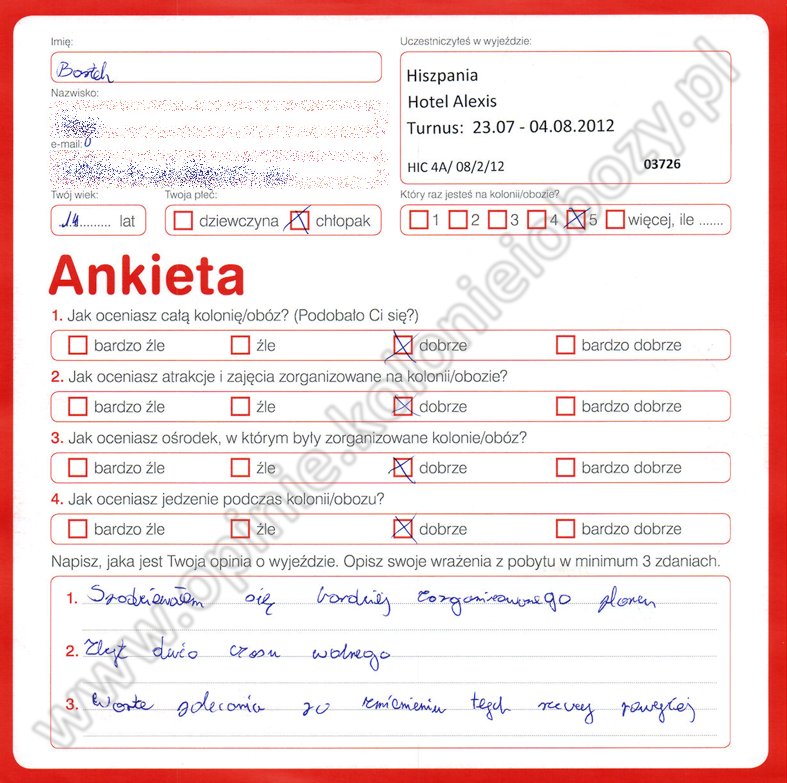 Imię:
Uczestniczyłeś w wyjeździe:
Hiszpania
Hotel Alexis
Turnus: 23.07 - 04.08.2012
HIC 4A/ 08/2/12 03726
Nazwisko:
e-mail:
Twój wiek: Twoja płeć: Który raz jesteś na kolonii/obozie?
14......... lat dziewczyna chłopak 1 2 3 4 5 więcej, ile .......
Ankieta
1. Jak oceniasz całą kolonię/obóz? (Podobało Ci się?)
bardzo źle źle dobrze bardzo dobrze
2. Jak oceniasz atrakcje i zajęcia zorganizowane na kolonii/obozie?
bardzo źle źle dobrze bardzo dobrze
3. Jak oceniasz ośrodek, w którym były zorganizowane kolonie/obóz?
bardzo źle źle dobrze bardzo dobrze
4. Jak oceniasz jedzenie podczas kolonii/obozu?
bardzo źle źle dobrze bardzo dobrze
Napisz, jaka jest Twoja opinia o wyjeździe. Opisz swoje wrażenia z pobytu w minimum 3 zdaniach.
1. Spodziewałem się bardziej zorganizowanego planu
2. Zbyt dużo czasu wolnego
3. Warte polecania po zmienieniu tych rzeczy powyżej
www.opinie.kolonieiobozy.pl